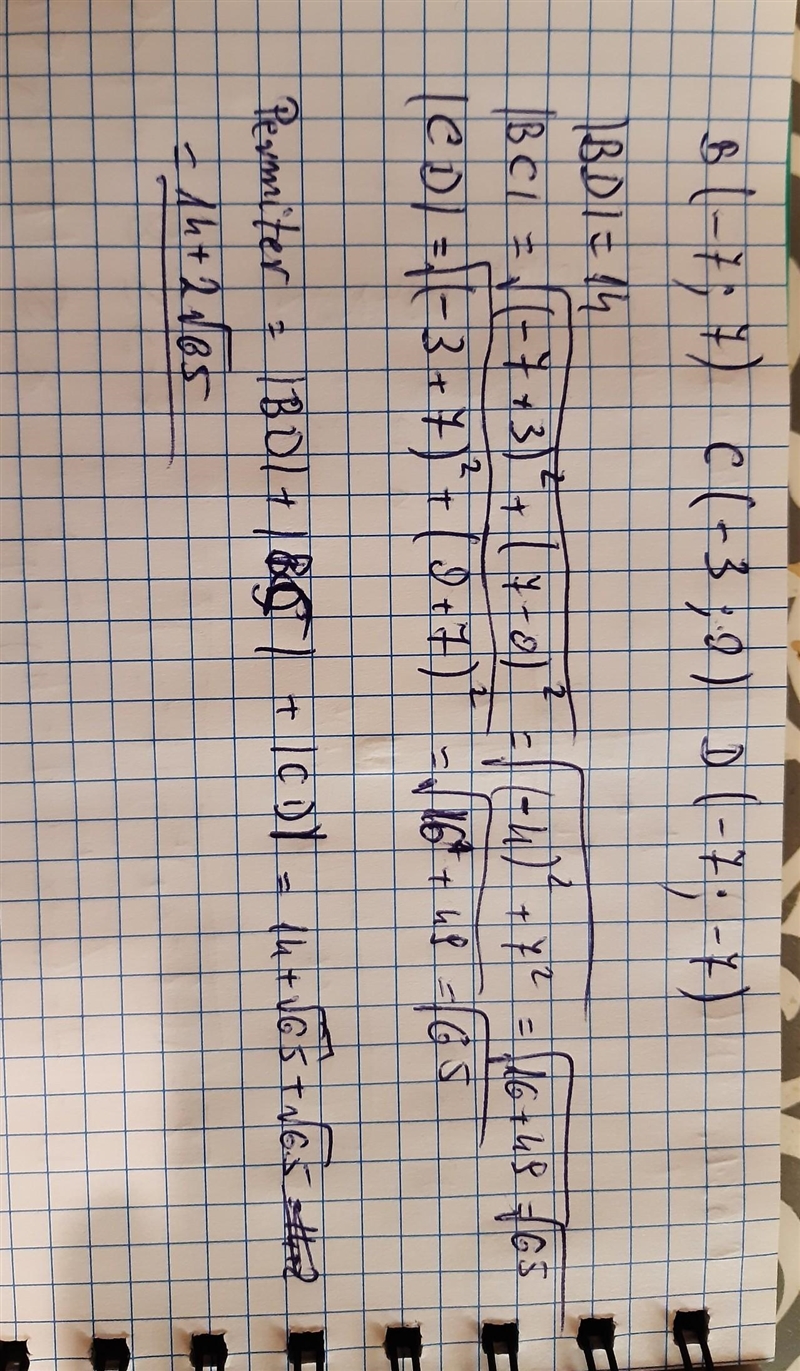 B(-7; 7) C(-3; 0) D(-7; -7)
|BD| = 14
|BC| = √(-7+3)² + (7-0)² = √(-4)² + 7² = √16+49 = √65
|CD| = √(-3+7)² + (0+7)² = √16 + 49 = √65
Permiter = |BD| + |BC| + |CD| = 14 + √65 + √65
= 14 + 2√65